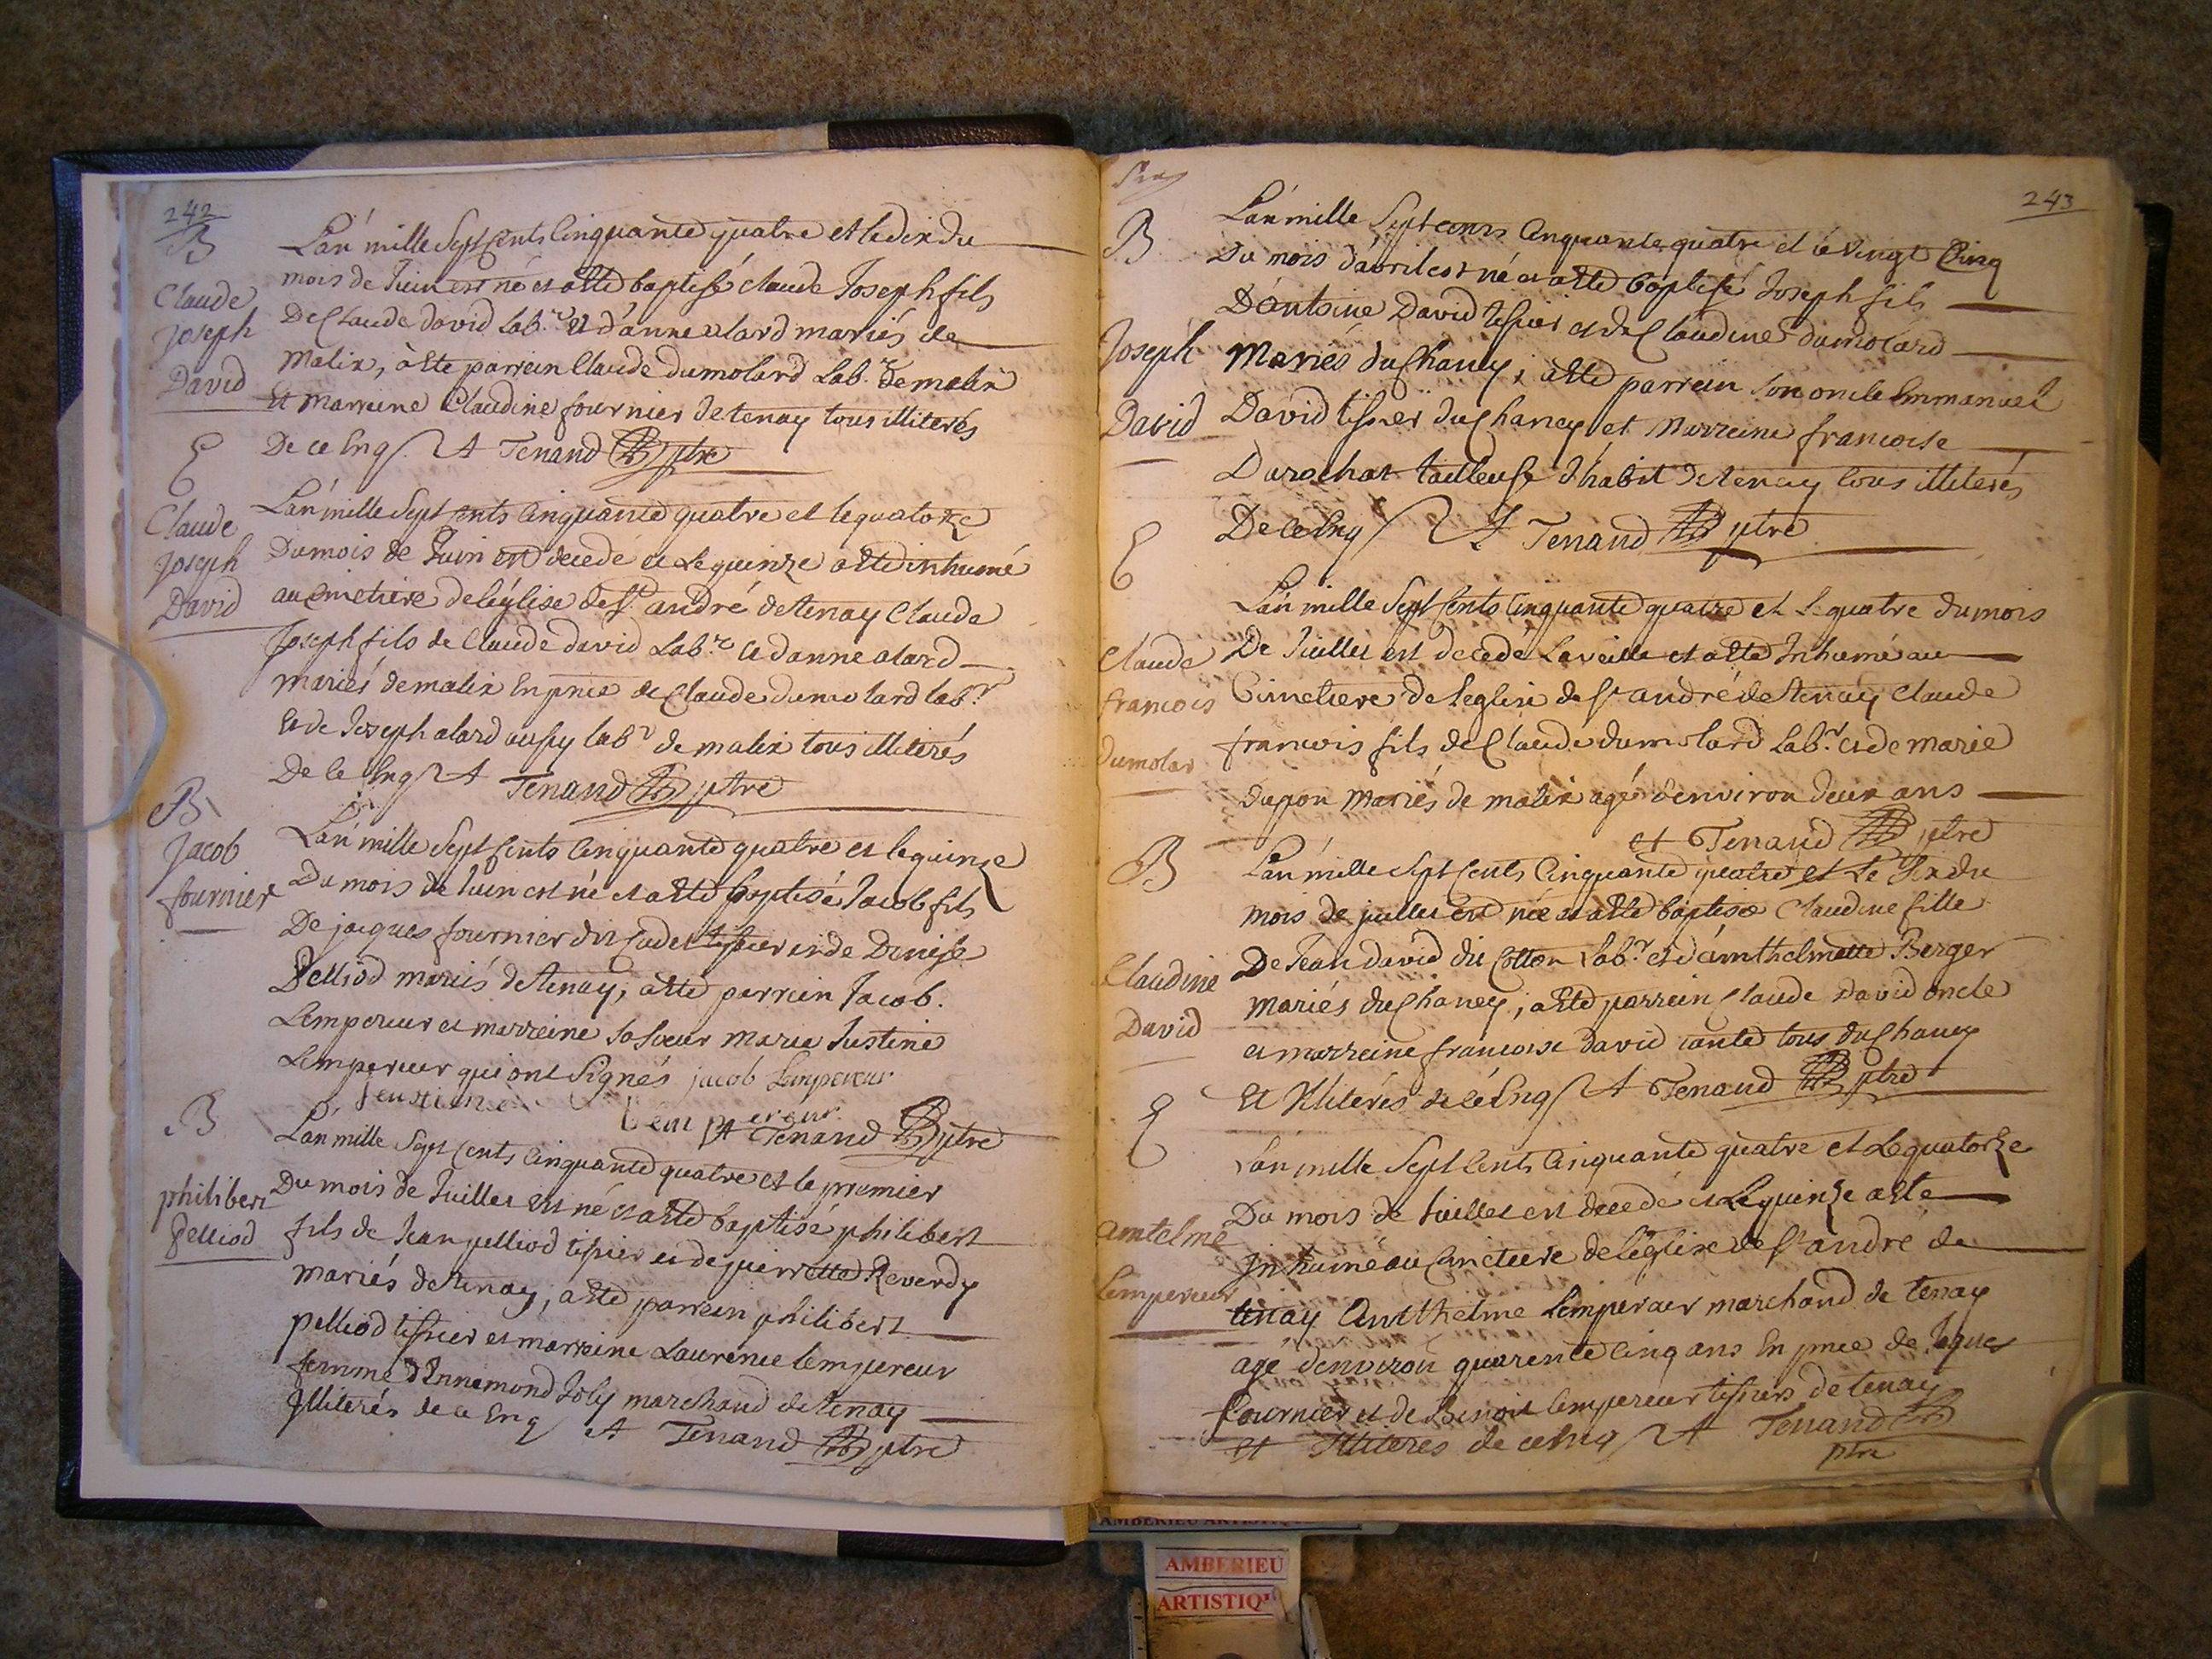 242
B
Claude
Joseph
David
L'an mille Sept Cents Cinquante quatre et le dix du
mois de Juin est né et a été baptisé claude Joseph fils
De Claude david Lab.r et d'anne alard mariés de
Malix, a été parrein Claude dumolard Lab.r de malix
et marreine Claudine fournier de tenay tous illiterés
De ce Enq. A Tenand ptre
E
Claude
Joseph
David
L'an mille Sept Cents Cinquante quatre et le quatorze
Du mois de Juin est decedé et Le quinze a été inhumé
au Cimetiere de l'église de St. andré de tenay Claude
Joseph fils de Claude david Lab.r et d'anne alard
mariés de malix En pnce de Claude dumolard lab.r
et de Joseph alard aussy lab.r de malix tous illiterés
De ce Enq A Tenand ptre
B
Jacob
fournier
L'an mille Sept Cents Cinquante quatre et le quinze
Du mois de Juin est né et a été baptisé Jacob fils
De jacques fournier dit Cadet tissier et de Denise
Pelliod mariés de tenay, a été parrein Jacob
Lempereur et marreine sa soeur marie Justine
Lempereur qui ont Signés jacob Lempereur
Jeustine
Lempereur
A Tenand ptre
B
philibert
pelliod
L'an mille Sept Cents Cinquante quatre et le premier
Du mois de Juillet est né et a été baptisé philibert
fils de Jean pelliod tissier et de pierrette Reverdy
mariés de tenay, a été parrein philibert
pelliod tissier et marreine Laurence lempereur
femme d'Ennemond Joly marchand de tenay
Illiterés de ce Enq A Tenand ptre
243
B
Joseph
David
L'an mille Sept cents Cinquante quatre et le vingt Cinq
Du mois d'avril est né et a été baptisé Joseph fils
D'antoine David tissier et de Claudine dumolard
Mariés du Chaney, a été parrein son oncle Emmanuel
David tissier du Chaney et Marreine francoise
Durochat tailleuse d'habit de tenay tous illiterés
De ce Enq A Tenand ptre
E
Claude
francois
Dumolar
L'an mille Sept Cents Cinquante quatre et le quatre du mois
De Juillet est decedé La veille et a été Inhumé au
Cimetiere de l'eglise de St andré de tenay Claude
francois fils de Claude dumolard Lab.r et de marie
Dupon Mariés de malix agé d'environ deux ans
et Tenand ptre
B
Claudine
David
L'an mille Sept Cents Cinquante quatre et Le Six du
mois de juillet est née et a été baptisée Claudine fille
De Jean david dit Cotton Lab.r et d'amthelmette Berger
mariés du Chaney, a été parrein Claude David oncle
et marreine francoise david tante tous du Chaney
Et Illiterés de ce Enq A Tenand ptre
E
amtelme
Lempereur
L'an mille Sept Cents Cinquante quatre et Le quatorze
Du mois de Juillet est decedé et Le quinze a été
Inhumé au Cimetiere de l'église de St andré de
tenay Amthelme Lempereur marchand de tenay
agé d'environ quarente Cinq ans En pnce de Jaques
fournier et de Benoit lempereur tissiers de tenay
et Illiteres de ce Enq A Tenand
ptre
AMBERIEU
ARTISTIQ